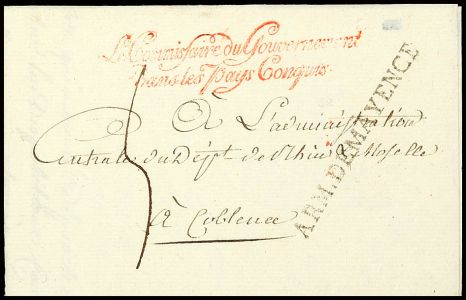 Le Commissaire du Gouvernement
dans les Pays Conquis.
ARM. DE MAYENCE
À L'administration
Centrale du Dépt. de Rhin & Moselle
à Coblence